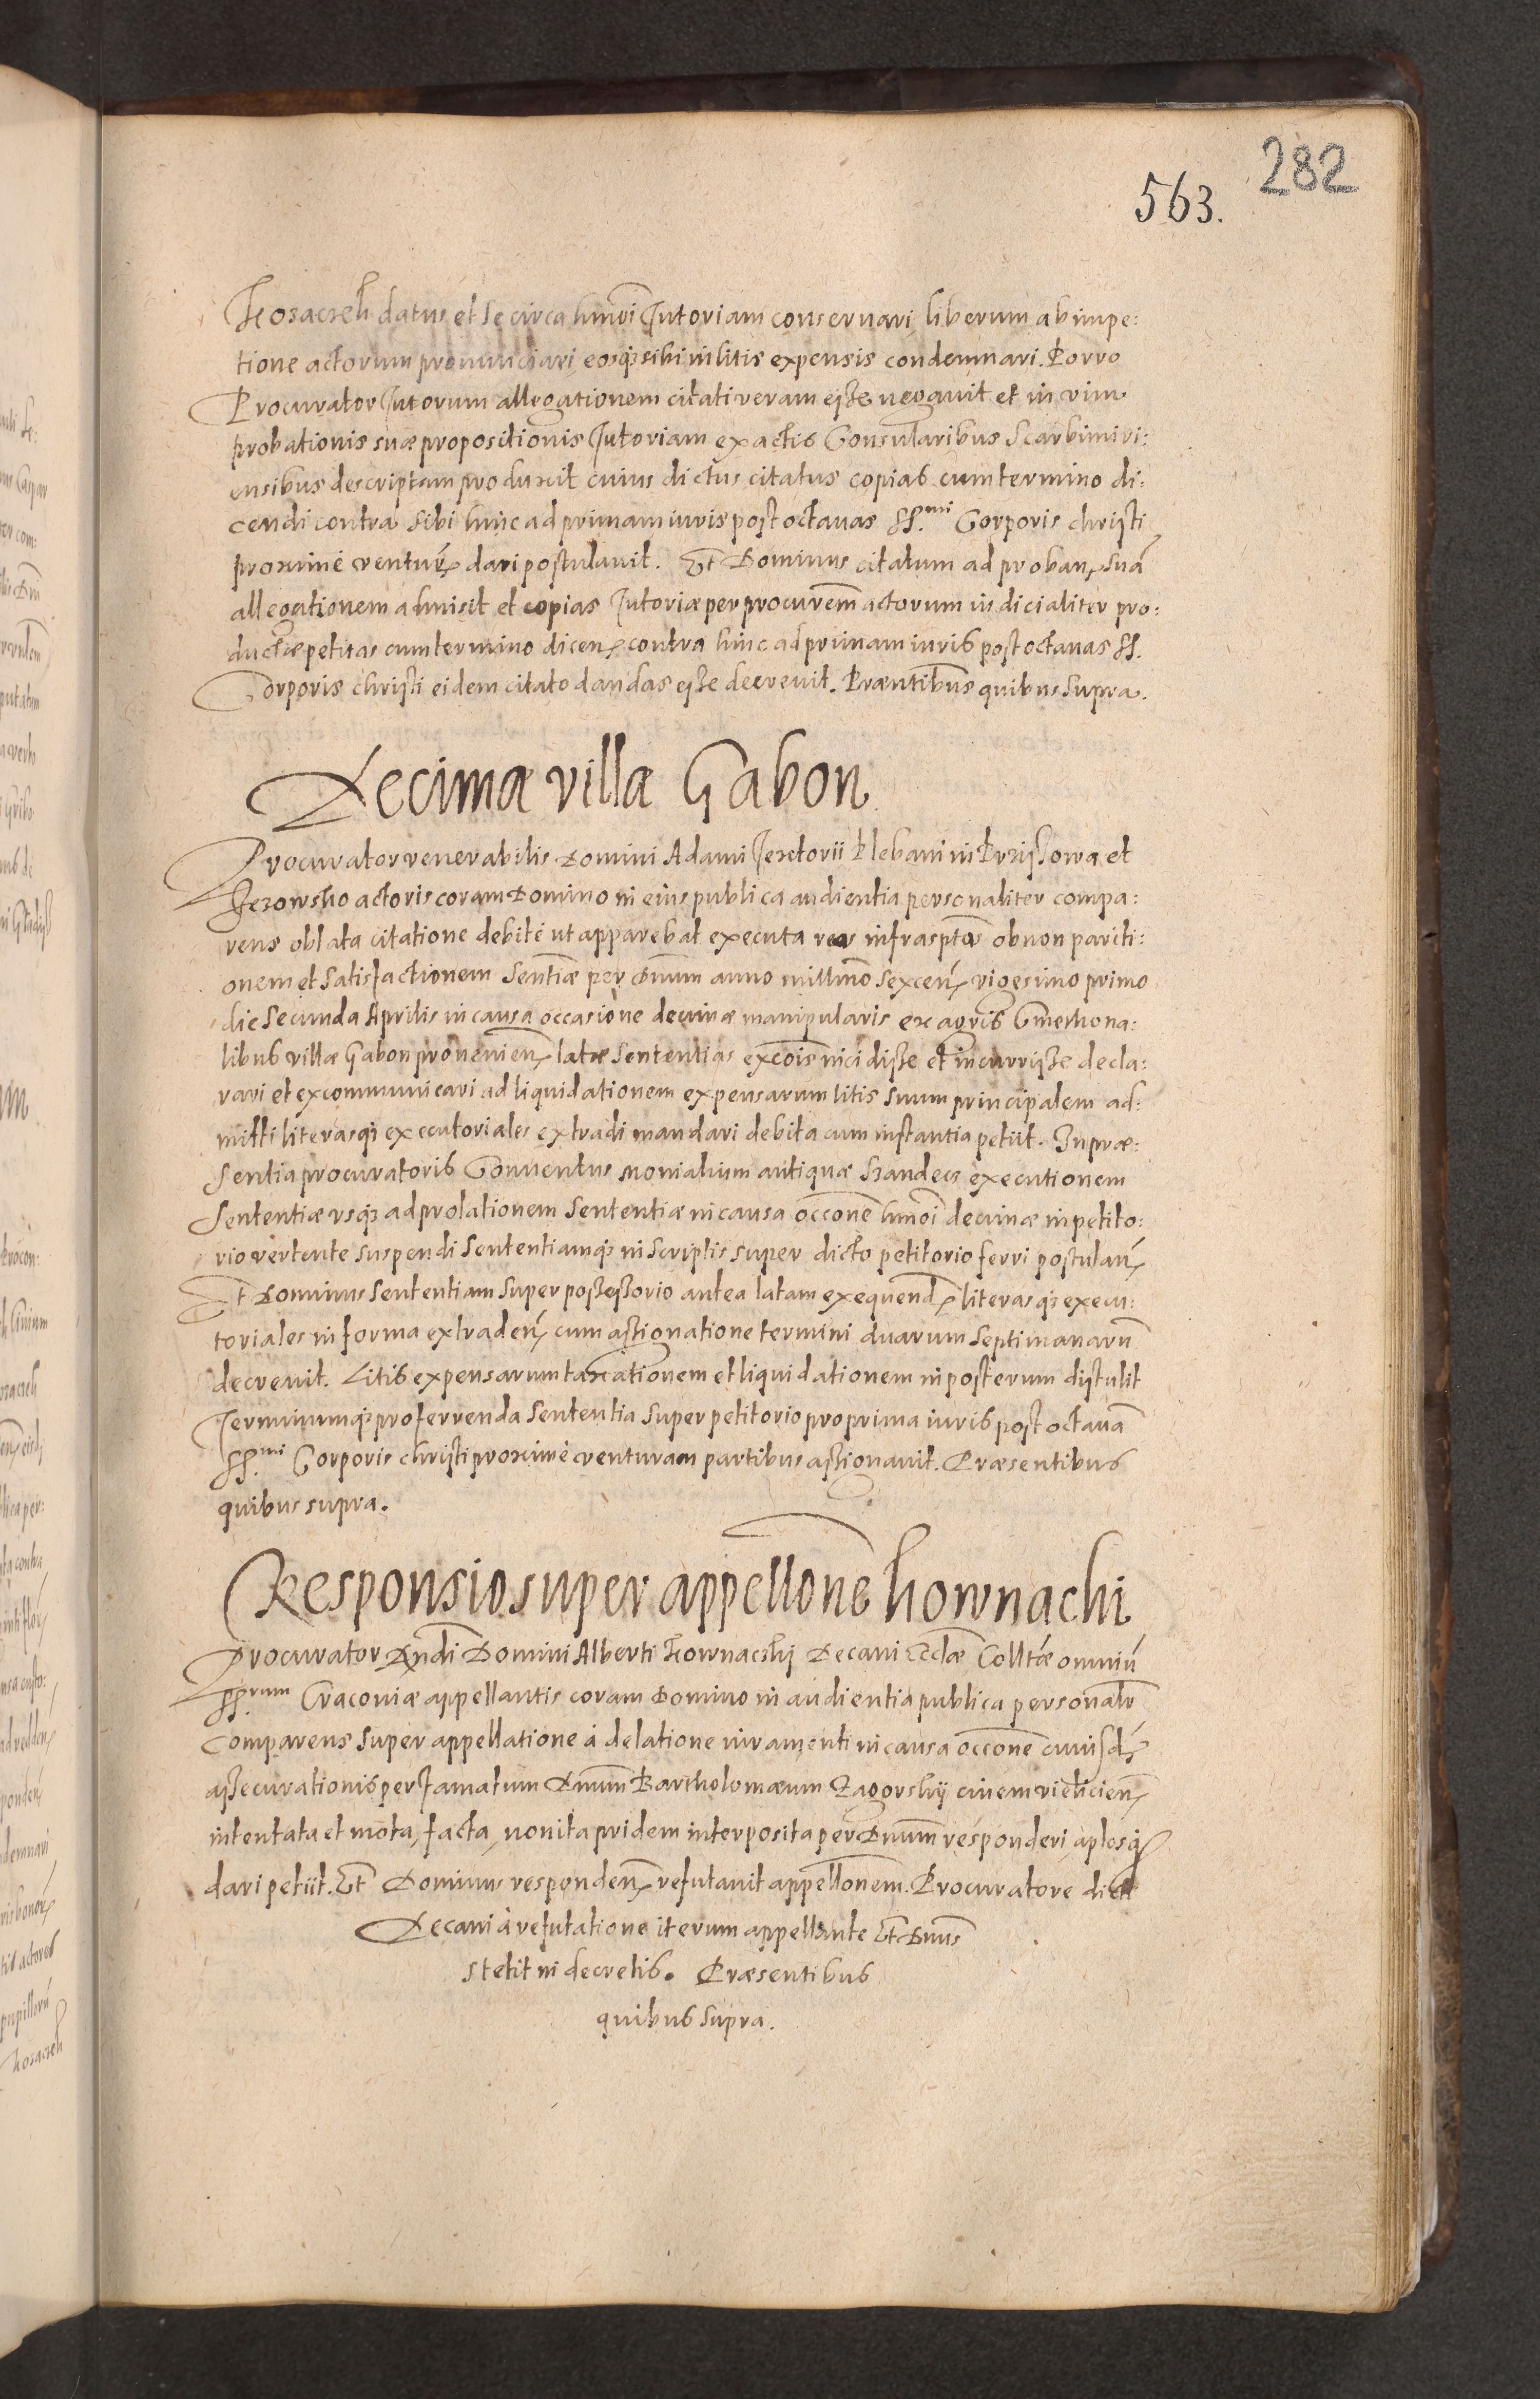 282
563.
Kosaczek datus et se circa hmoi Tutoriam conservari liberum ab impe:
tione actorum pronunciari, eosq; sibi in litis expensis condemnari. Porro
Procurator Tutorum allegationem citati veram esse negavit et in vim
probationis suæ propositionis Tutoriam ex actis Consularibus Scarbimiri:
ensibus descriptam produxit cuius dictus citatus copias cum termino di:
cendi contra sibi hinc ad primam iuris post octavas SS.mi Corporis christi
proximè ventur dari postulavit. Et Dominus citatum ad proban suā
allegationem admisit et copias Tutoriæ per procurem actorum iudicialiter pro:
ductæ petitas cum termino dicen contra hinc ad primam iuris post octavas SS.
Corporis christi eidem citato dandas esse decrevit. Præntibus quibus supra.
Decimæ villæ Gabon
Procurator venerabilis Domini Adami Textorii Plebani in Przissowa et
Jezowsko actoris coram Domino in eius publica audientia personaliter compa:
rens oblata citatione debitè ut apparebat executa infrasptas ob non pariti:
onem et satisfactionem sentiæ per Dnum anno millmo sexcen vigesimo primo
die secunda Aprilis in causa occasione decimæ manipularis ex agris Cmethona:
libus villæ Gabon provenien latæ sententias excois incidisse et incurrisse decla:
rari et excommunicari ad liquidationem expensarum litis suum principalem ad:
mitti literasq; executoriales extradi mandari debita cum instantia petiit. In præ:
sentia procuratoris Conventus monialium antiquæ Szandecz executionem
sententiæ usq; ad prolationem sententiæ in causa occone hmoi decimæ in petito:
rio vertente suspendi sententiamq; in scriptis super dicto petitorio ferri postulan
Et Dominus sententiam super possessorio antea latam exequend literasq; execu:
toriales in forma extraden cum assignatione termini duarum septimanarū
decrevit. Litis expensarum taxationem et liquidationem in posterum distulit
Terminumq; pro ferrenda sententia super petitorio pro prima iuris post octavā
SS.mi Corporis christi proximè venturam partibus assignavit. Præsentibus
quibus supra.
Responsio super appellone kownacki
Procurator Rndi Domini Alberti Kownaczki Decani Ecclæ Colltæ omniū
SS.rum Cracoviæ appellantis coram Domino in audientia publica personalr
Comparens super appellatione à delatione iuramenti in causa occone cuiusd
assecurationis per famatum Dnum Bartholomæum Zagorskij civem vielicien
intentata et mota, facta, non ita pridem interposita per Dnum responderi, aplosq;
dari petiit. Et Dominus responden refutavit appellonem. Procuratore dicti
Decani à refutatione iterum appellante Et Dnus
stetit in decretis. Præsentibus
quibus supra.